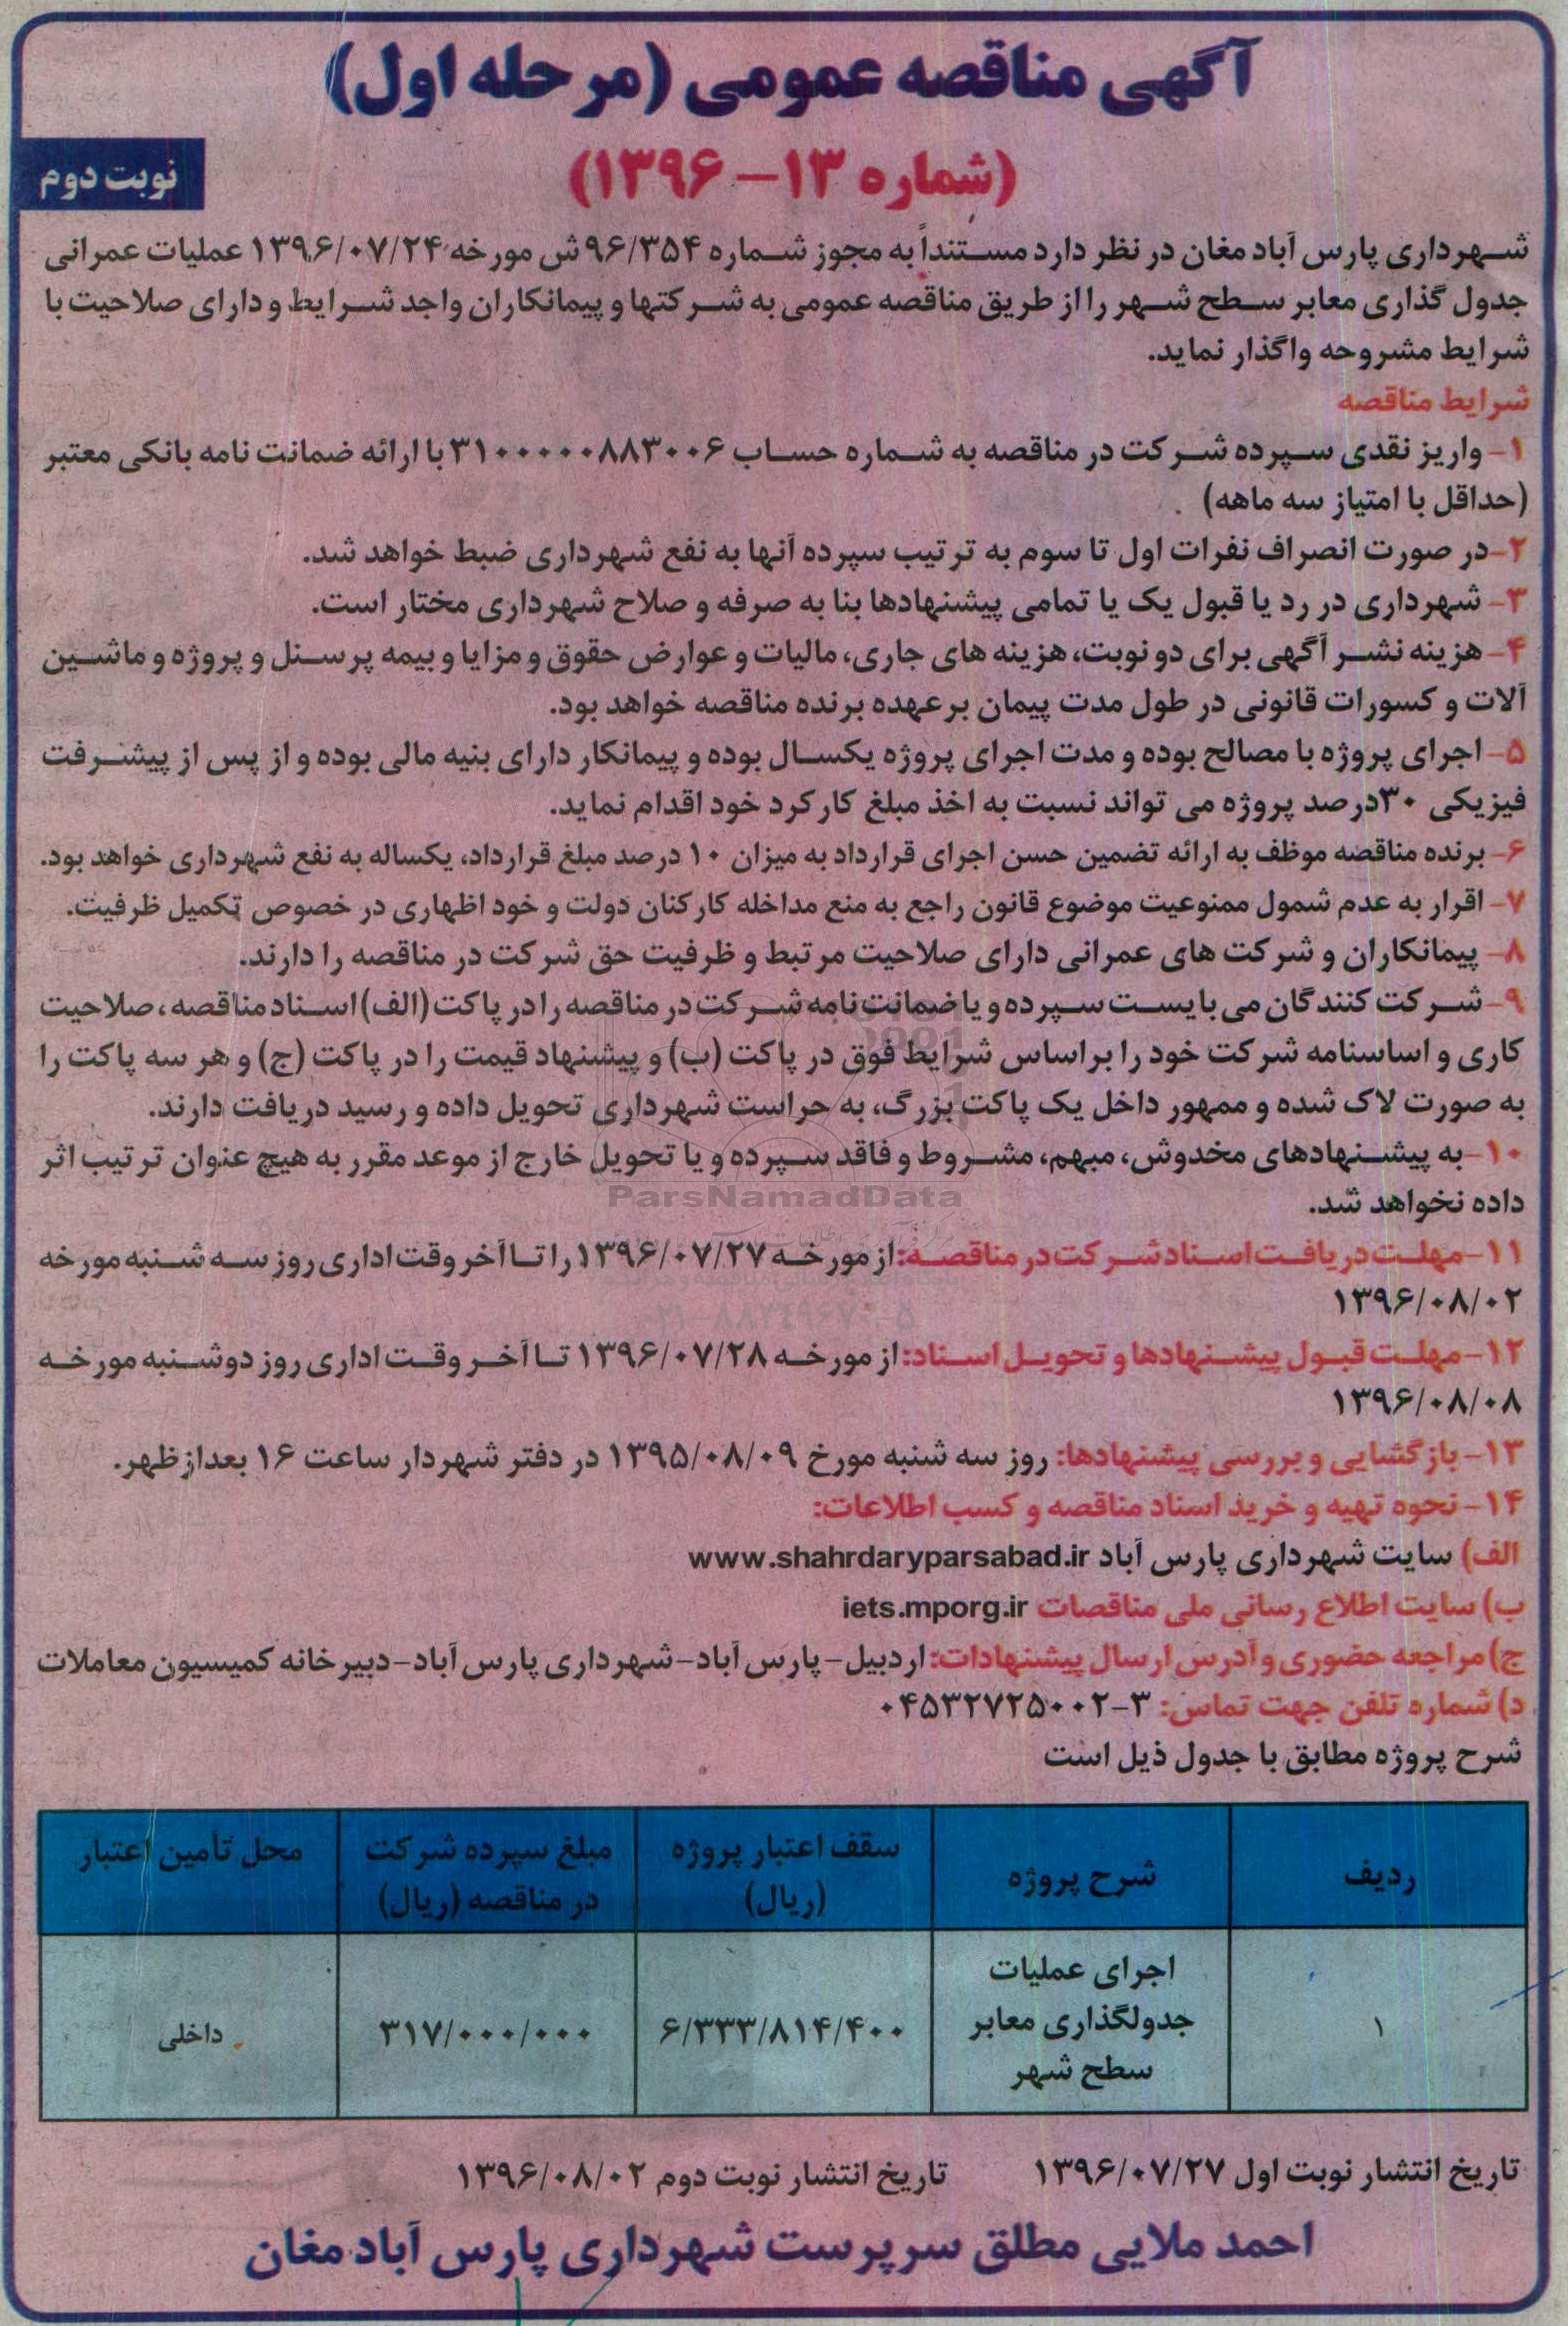 آگهی مناقصه عمومی (مرحله اول)
(شماره ۱۳–۱۳۹۶)
نوبت دوم
شهرداری پارس آباد مغان در نظر دارد مستنداً به مجوز شماره ۹۶/۳۵۴ش مورخه ۱۳۹۶/۰۷/۲۴ عملیات عمرانی
جدول گذاری معابر سطح شهر را از طریق مناقصه عمومی به شرکتها و پیمانکاران واجد شرایط و دارای صلاحیت با
شرایط مشروحه واگذار نماید.
شرایط مناقصه
۱– واریز نقدی سپرده شرکت در مناقصه به شماره حساب ۳۱۰۰۰۰۰۸۸۳۰۰۶ با ارائه ضمانت نامه بانکی معتبر
(حداقل با امتیاز سه ماهه)
۲–در صورت انصراف نفرات اول تا سوم به ترتیب سپرده آنها به نفع شهرداری ضبط خواهد شد.
۳– شهرداری در رد یا قبول یک یا تمامی پیشنهادها بنا به صرفه و صلاح شهرداری مختار است.
۴– هزینه نشر آگهی برای دو نوبت، هزینه های جاری، مالیات و عوارض حقوق و مزایا و بیمه پرسنل و پروژه و ماشین
آلات و کسورات قانونی در طول مدت پیمان برعهده برنده مناقصه خواهد بود.
۵– اجرای پروژه با مصالح بوده و مدت اجرای پروژه یکسال بوده و پیمانکار دارای بنیه مالی بوده و از پس از پیشرفت
فیزیکی ۳۰درصد پروژه می تواند نسبت به اخذ مبلغ کارکرد خود اقدام نماید.
۶– برنده مناقصه موظف به ارائه تضمین حسن اجرای قرارداد به میزان ۱۰ درصد مبلغ قرارداد، یکساله به نفع شهرداری خواهد بود.
۷– اقرار به عدم شمول ممنوعیت موضوع قانون راجع به منع مداخله کارکنان دولت و خود اظهاری در خصوص تکمیل ظرفیت.
۸– پیمانکاران و شرکت های عمرانی دارای صلاحیت مرتبط و ظرفیت حق شرکت در مناقصه را دارند.
۹– شرکت کنندگان می بایست سپرده و یا ضمانت نامه شرکت در مناقصه را در پاکت (الف) اسناد مناقصه، صلاحیت
کاری و اساسنامه شرکت خود را براساس شرایط فوق در پاکت (ب) و پیشنهاد قیمت را در پاکت (ج) و هر سه پاکت را
به صورت لاک شده و ممهور داخل یک پاکت بزرگ، به حراست شهرداری تحویل داده و رسید دریافت دارند.
۱۰–به پیشنهادهای مخدوش، مبهم، مشروط و فاقد سپرده و یا تحویل خارج از موعد مقرر به هیچ عنوان ترتیب اثر
ParsNamadData
داده نخواهد شد.
۱۱–مهلت دریافت اسناد شرکت در مناقصه: از مورخه ۱۳۹۶/۰۷/۲۷ را تا آخر وقت اداری روز سه شنبه مورخه
۱۳۹۶/۰۸/۰۲
۱۲–مهلت قبول پیشنهادها و تحویل اسناد: از مورخه ۱۳۹۶/۰۷/۲۸ تا آخر وقت اداری روز دوشنبه مورخه
۱۳۹۶/۰۸/۰۸
۱۳– بازگشایی و بررسی پیشنهادها: روز سه شنبه مورخ ۱۳۹۵/۰۸/۰۹ در دفتر شهردار ساعت ۱۶ بعدازظهر.
۱۴– نحوه تهیه و خرید اسناد مناقصه و کسب اطلاعات:
الف) سایت شهرداری پارس آباد www.shahrdaryparsabad.ir
ب) سایت اطلاع رسانی ملی مناقصات iets.mporg.ir
ج) مراجعه حضوری و آدرس ارسال پیشنهادات: اردبیل–پارس آباد–شهرداری پارس آباد–دبیرخانه کمیسیون معاملات
د) شماره تلفن جهت تماس: ۳–۰۴۵۳۲۷۲۵۰۰۲
شرح پروژه مطابق با جدول ذیل است
ردیف	شرح پروژه	سقف اعتبار پروژه (ریال)	مبلغ سپرده شرکت در مناقصه (ریال)	محل تأمین اعتبار
۱	اجرای عملیات جدولگذاری معابر سطح شهر	۶/۳۳۳/۸۱۴/۴۰۰	۳۱۷/۰۰۰/۰۰۰	داخلی
تاریخ انتشار نوبت اول ۱۳۹۶/۰۷/۲۷ تاریخ انتشار نوبت دوم ۱۳۹۶/۰۸/۰۲
احمد ملایی مطلق سرپرست شهرداری پارس آباد مغان